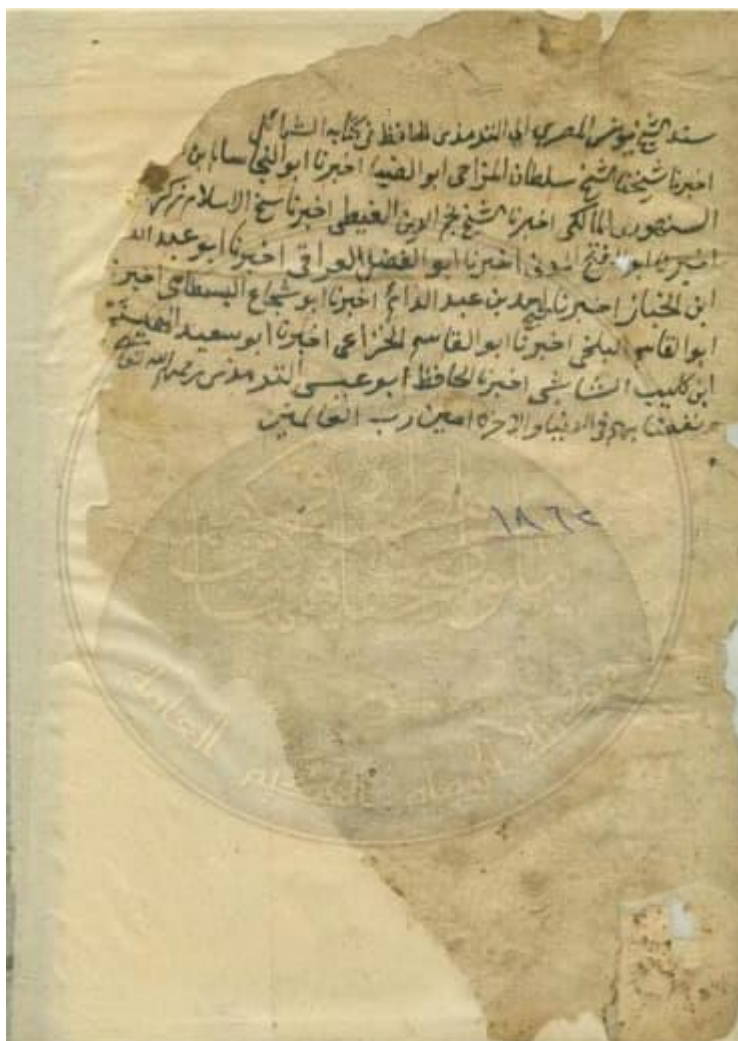 سند الشيخ يونس المصري الى الترمذى الحافظ فى كتابه الشمائل
اخبرنا شيخنا الشيخ سلطان المزاحى ابو الضيا اخبرنا ابو النجا سالم بن
السنهورى المالكى اخبرنا الشيخ نجم الدين الغيطى اخبرنا شيخ الاسلام زكريا
اخبرنا ابو الفتح اخبرنا ابو الفضل العراقى اخبرنا ابو عبد الله
ابن الخباز اخبرنا احمد بن عبد الدائم اخبرنا ابو شجاع البسطامى اخبرنا
ابو القاسم البلخى اخبرنا ابو القاسم الخزاعى اخبرنا ابو سعيد الهيثم
ابن كليب الشاشى اخبرنا الحافظ ابو عيسى الترمذى رحمهم الله تعالى
ونفعنا بهم فى الدنيا والاخرة امين رب العالمين